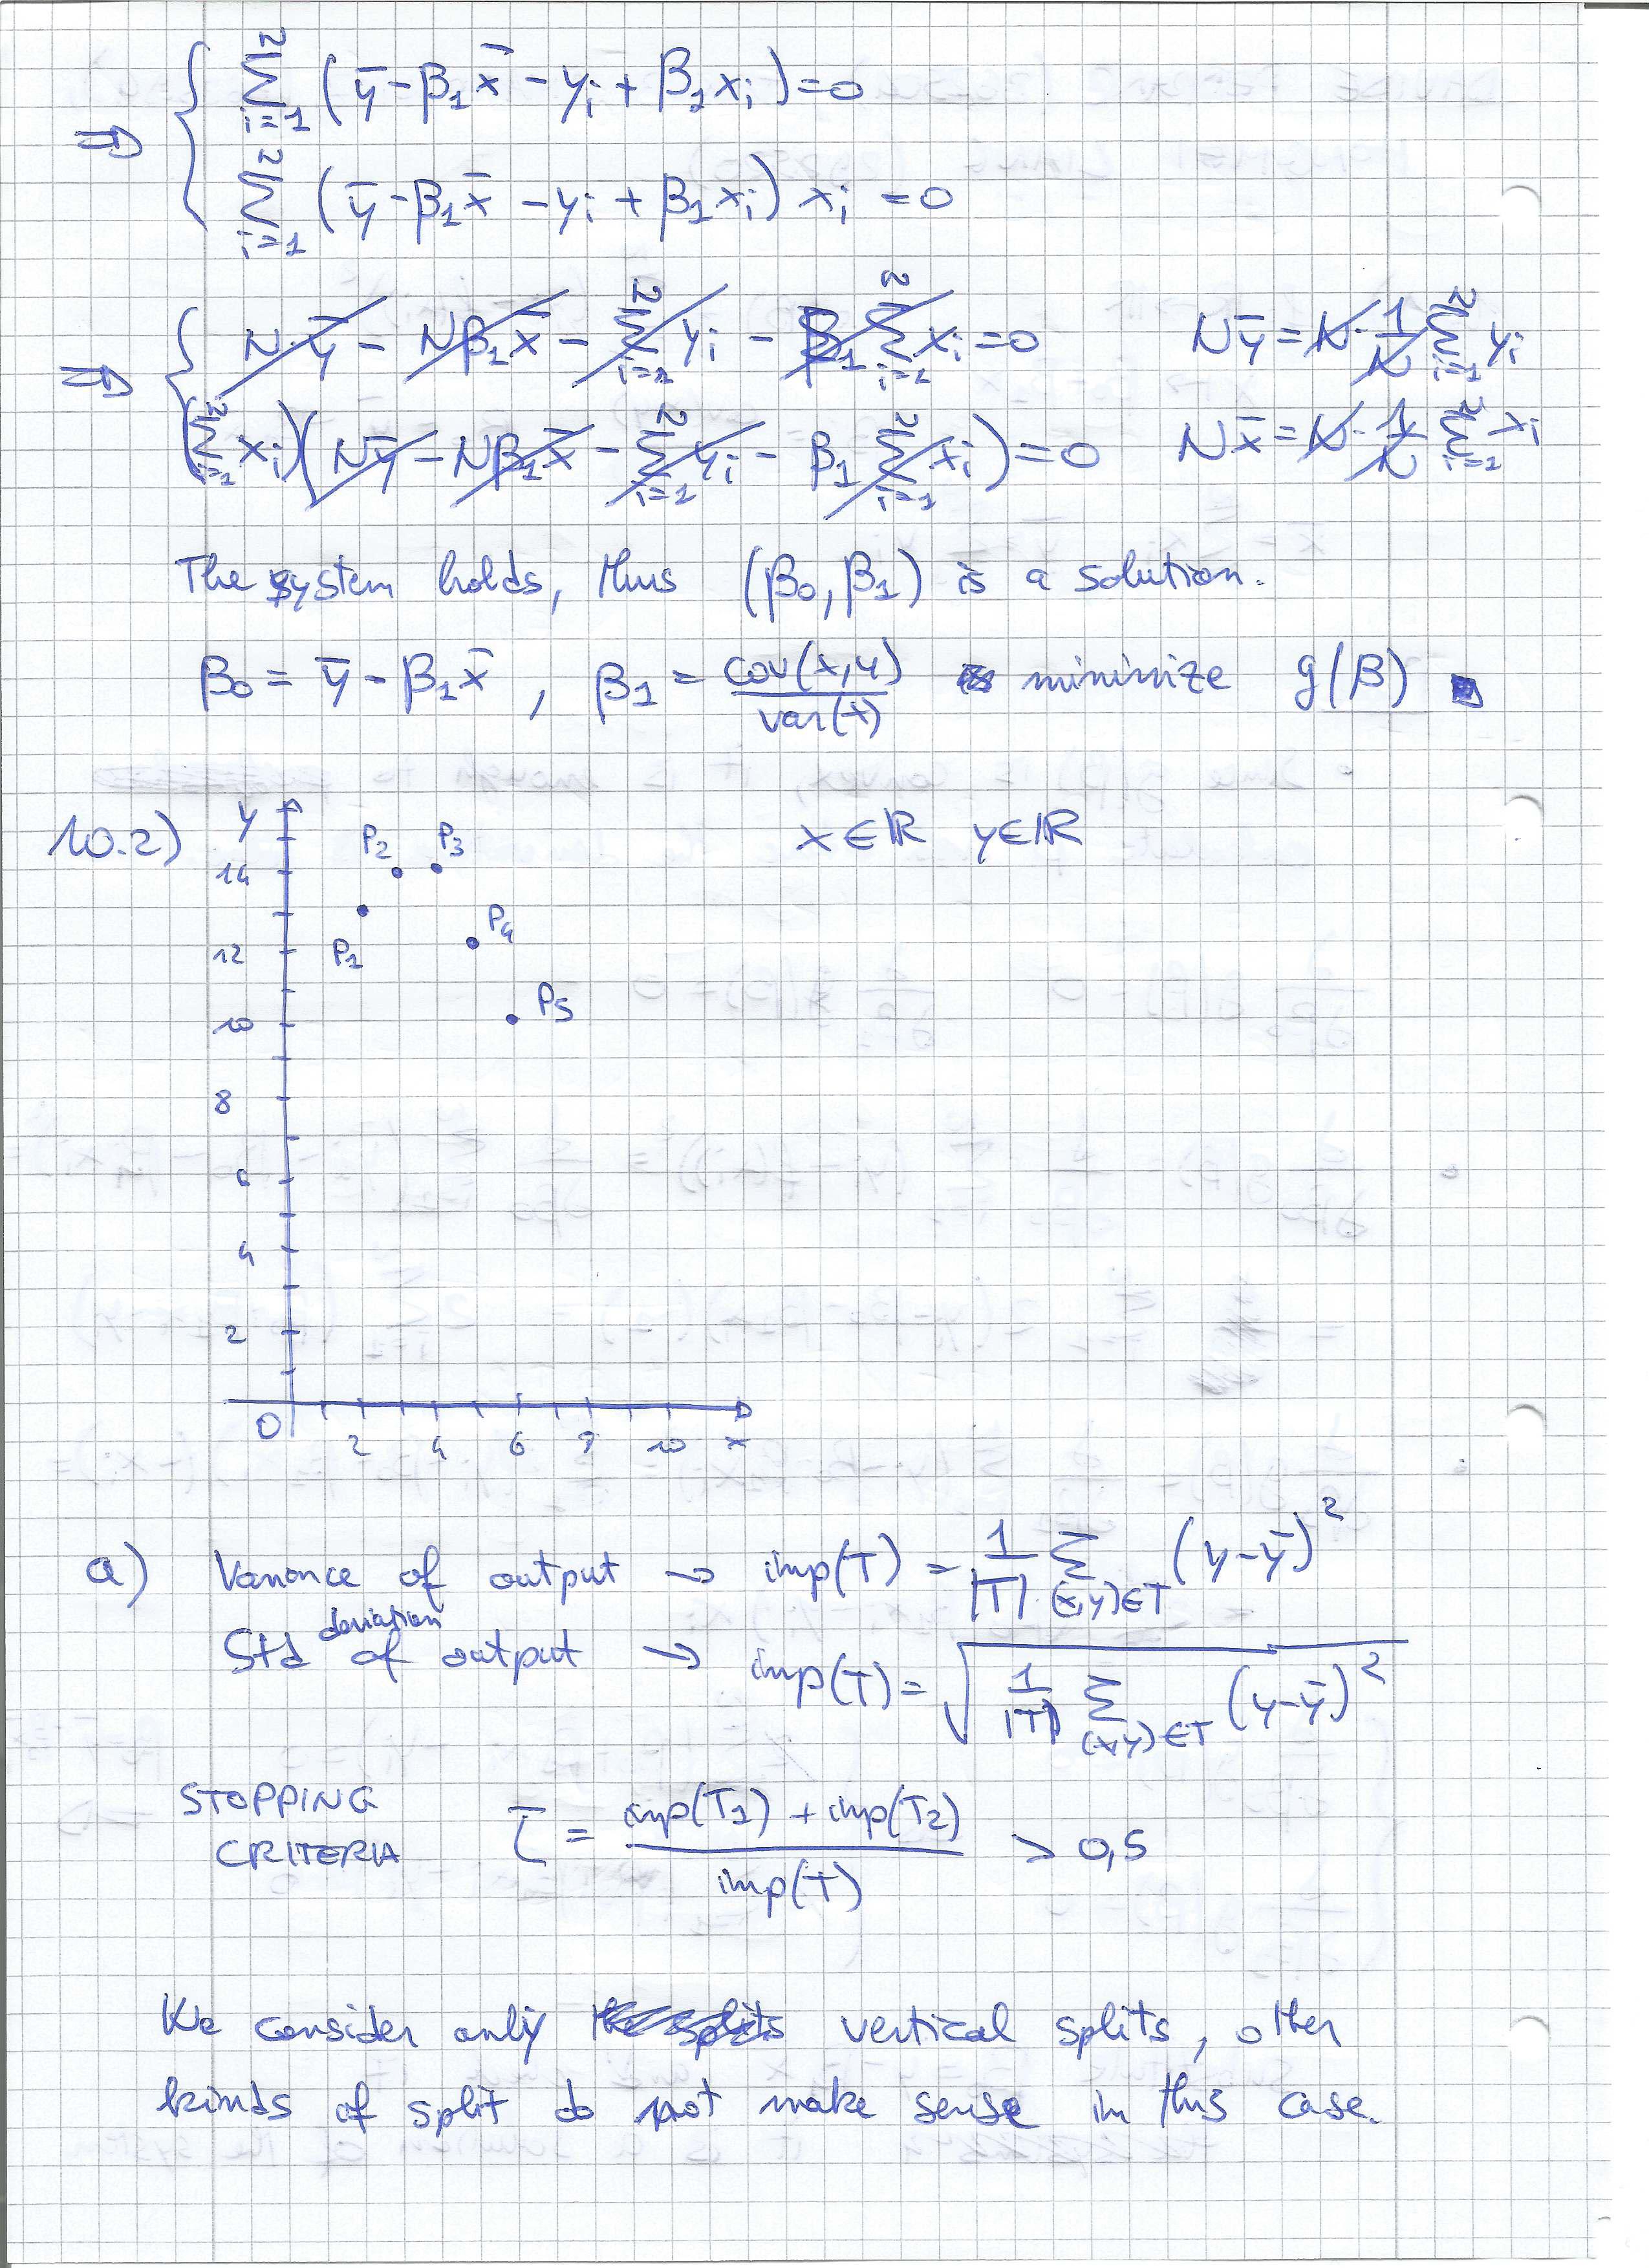 ⇒ { Σ_{i=1}^{N} (ȳ - β₁x̄ - yᵢ + β₁xᵢ) = 0
Σ_{i=1}^{N} (ȳ - β₁x̄ - yᵢ + β₁xᵢ) xᵢ = 0
⇒ { N·ȳ - Nβ₁x̄ - Σ_{i=1}^{N} yᵢ - β₁ Σ_{i=1}^{N} xᵢ = 0 Nȳ = N·1/N Σ_{i=1}^{N} yᵢ
(Σ_{i=1}^{N} xᵢ)(Nȳ - Nβ₁x̄ - Σ_{i=1}^{N} yᵢ - β₁ Σ_{i=1}^{N} xᵢ) = 0 Nx̄ = N·1/N Σ_{i=1}^{N} xᵢ
The system holds, thus (β₀, β₁) is a solution.
β₀ = ȳ - β₁x̄ , β₁ = cov(x,y)/var(x) minimize g(β) ■
10.2) y x∈ℝ y∈ℝ
P2 P3
14
P4
12 P1
P5
10
8
6
4
2
0 2 4 6 8 10 x
a) Variance of output → imp(T) = 1/|T| Σ_{(x,y)∈T} (y-ȳ)²
Std deviation of output → imp(T) = √(1/|T| Σ_{(x,y)∈T} (y-ȳ)²)
STOPPING CRITERIA τ = (imp(T₁) + imp(T₂))/imp(T) > 0,5
We consider only the splits vertical splits, other
kinds of split do not make sense in this case.